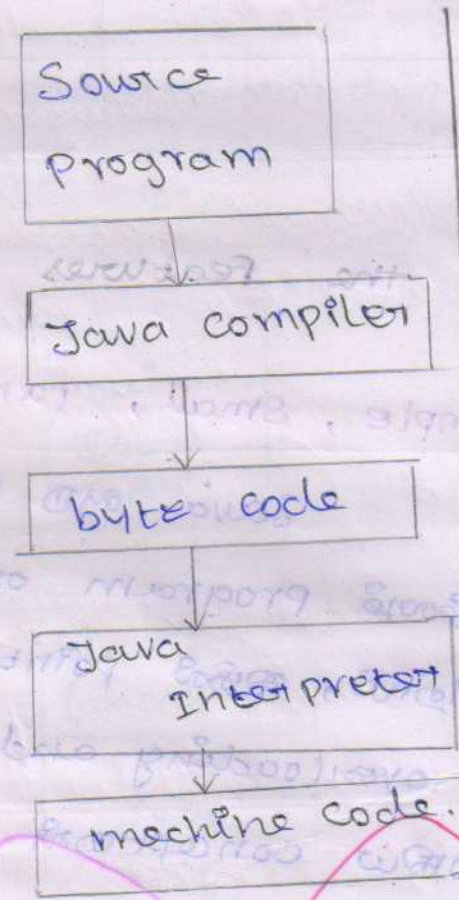 Source
program
Java compiler
byte code
Java
Interpreter
machine code.